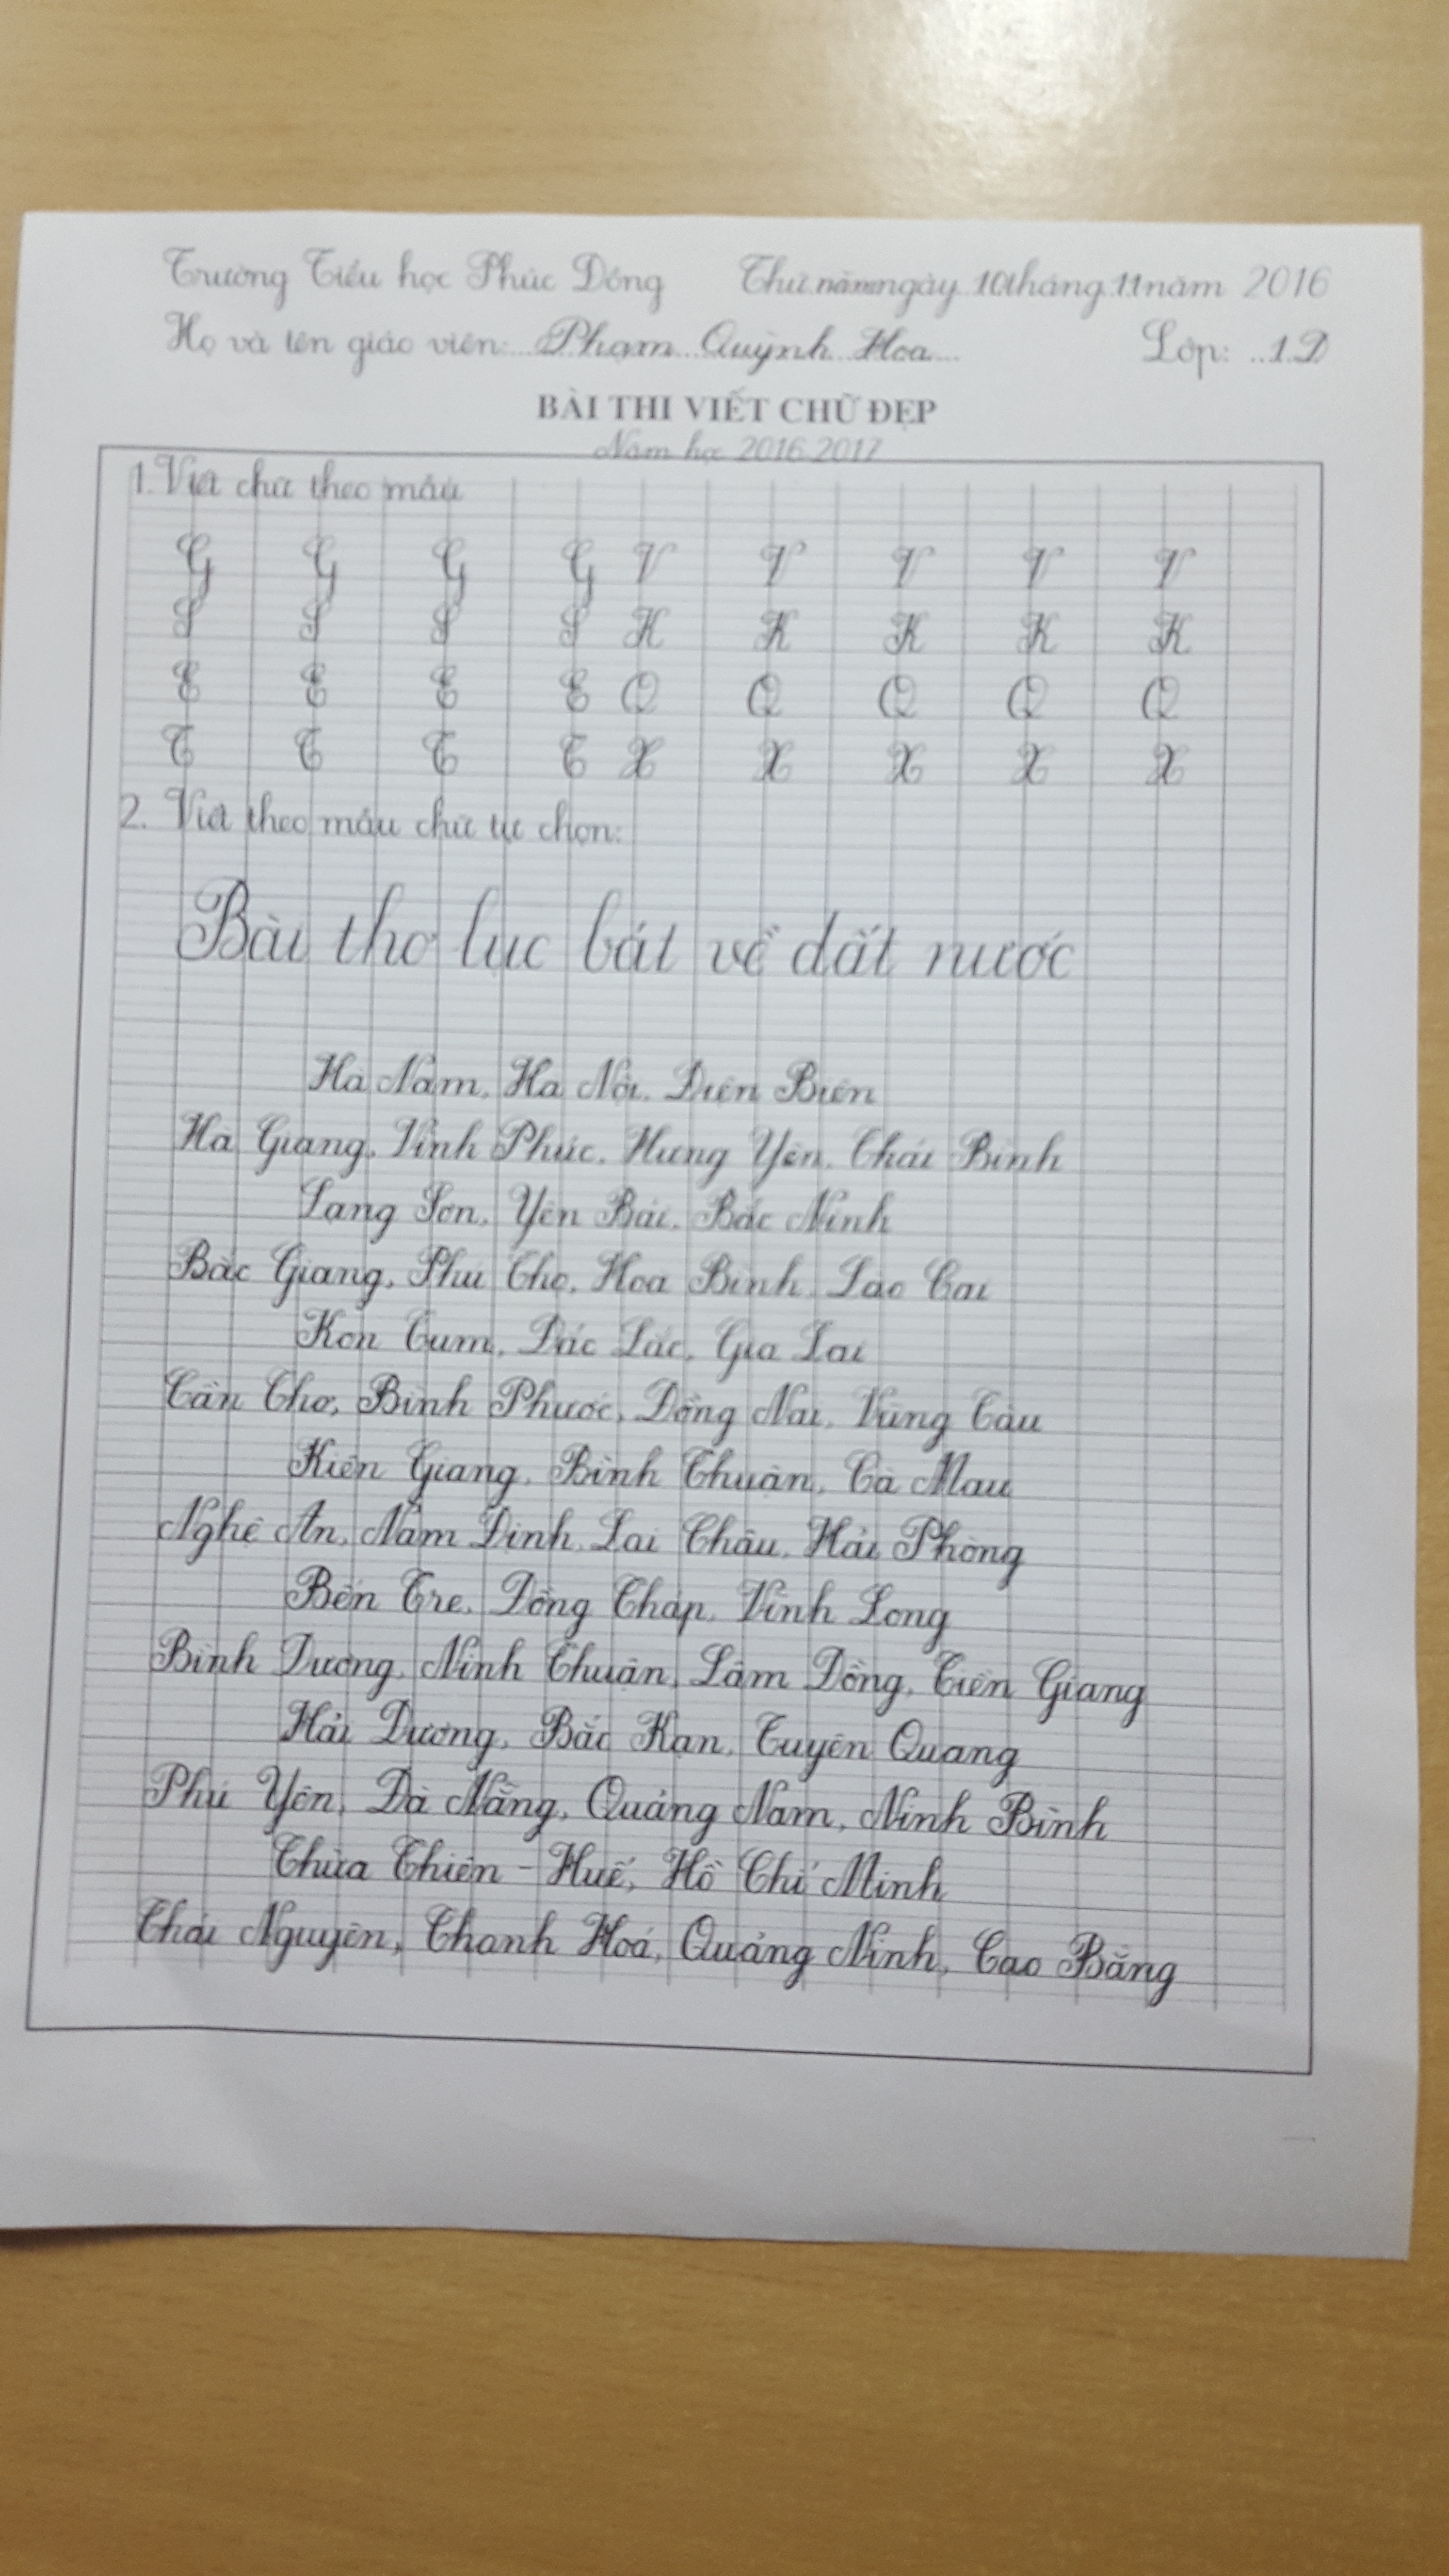 Trường Tiểu học Phúc Đồng Thứ năm ngày 10 tháng 11 năm 2016
Họ và tên giáo viên: Phạm Quỳnh Hoa Lớp: 1D
BÀI THI VIẾT CHỮ ĐẸP
Năm học 2016 2017
1. Viết chữ theo mẫu
G G G G V V V V V
S S S S K K K K K
E E E E Q Q Q Q Q
T T T T X X X X X
2. Viết theo mẫu chữ tự chọn:
Bài thơ lục bát về đất nước
Hà Nam, Hà Nội, Điện Biên
Hà Giang, Vĩnh Phúc, Hưng Yên, Thái Bình
Lạng Sơn, Yên Bái, Bắc Ninh
Bắc Giang, Phú Thọ, Hoà Bình, Lào Cai
Kon Tum, Đắc Lắc, Gia Lai
Cần Thơ, Bình Phước, Đồng Nai, Vũng Tàu
Kiên Giang, Bình Thuận, Cà Mau
Nghệ An, Nam Định, Lai Châu, Hải Phòng
Bến Tre, Đồng Tháp, Vĩnh Long
Bình Dương, Ninh Thuận, Lâm Đồng, Tiền Giang
Hải Dương, Bắc Kạn, Tuyên Quang
Phú Yên, Đà Nẵng, Quảng Nam, Ninh Bình
Thừa Thiên - Huế, Hồ Chí Minh
Thái Nguyên, Thanh Hoá, Quảng Ninh, Cao Bằng